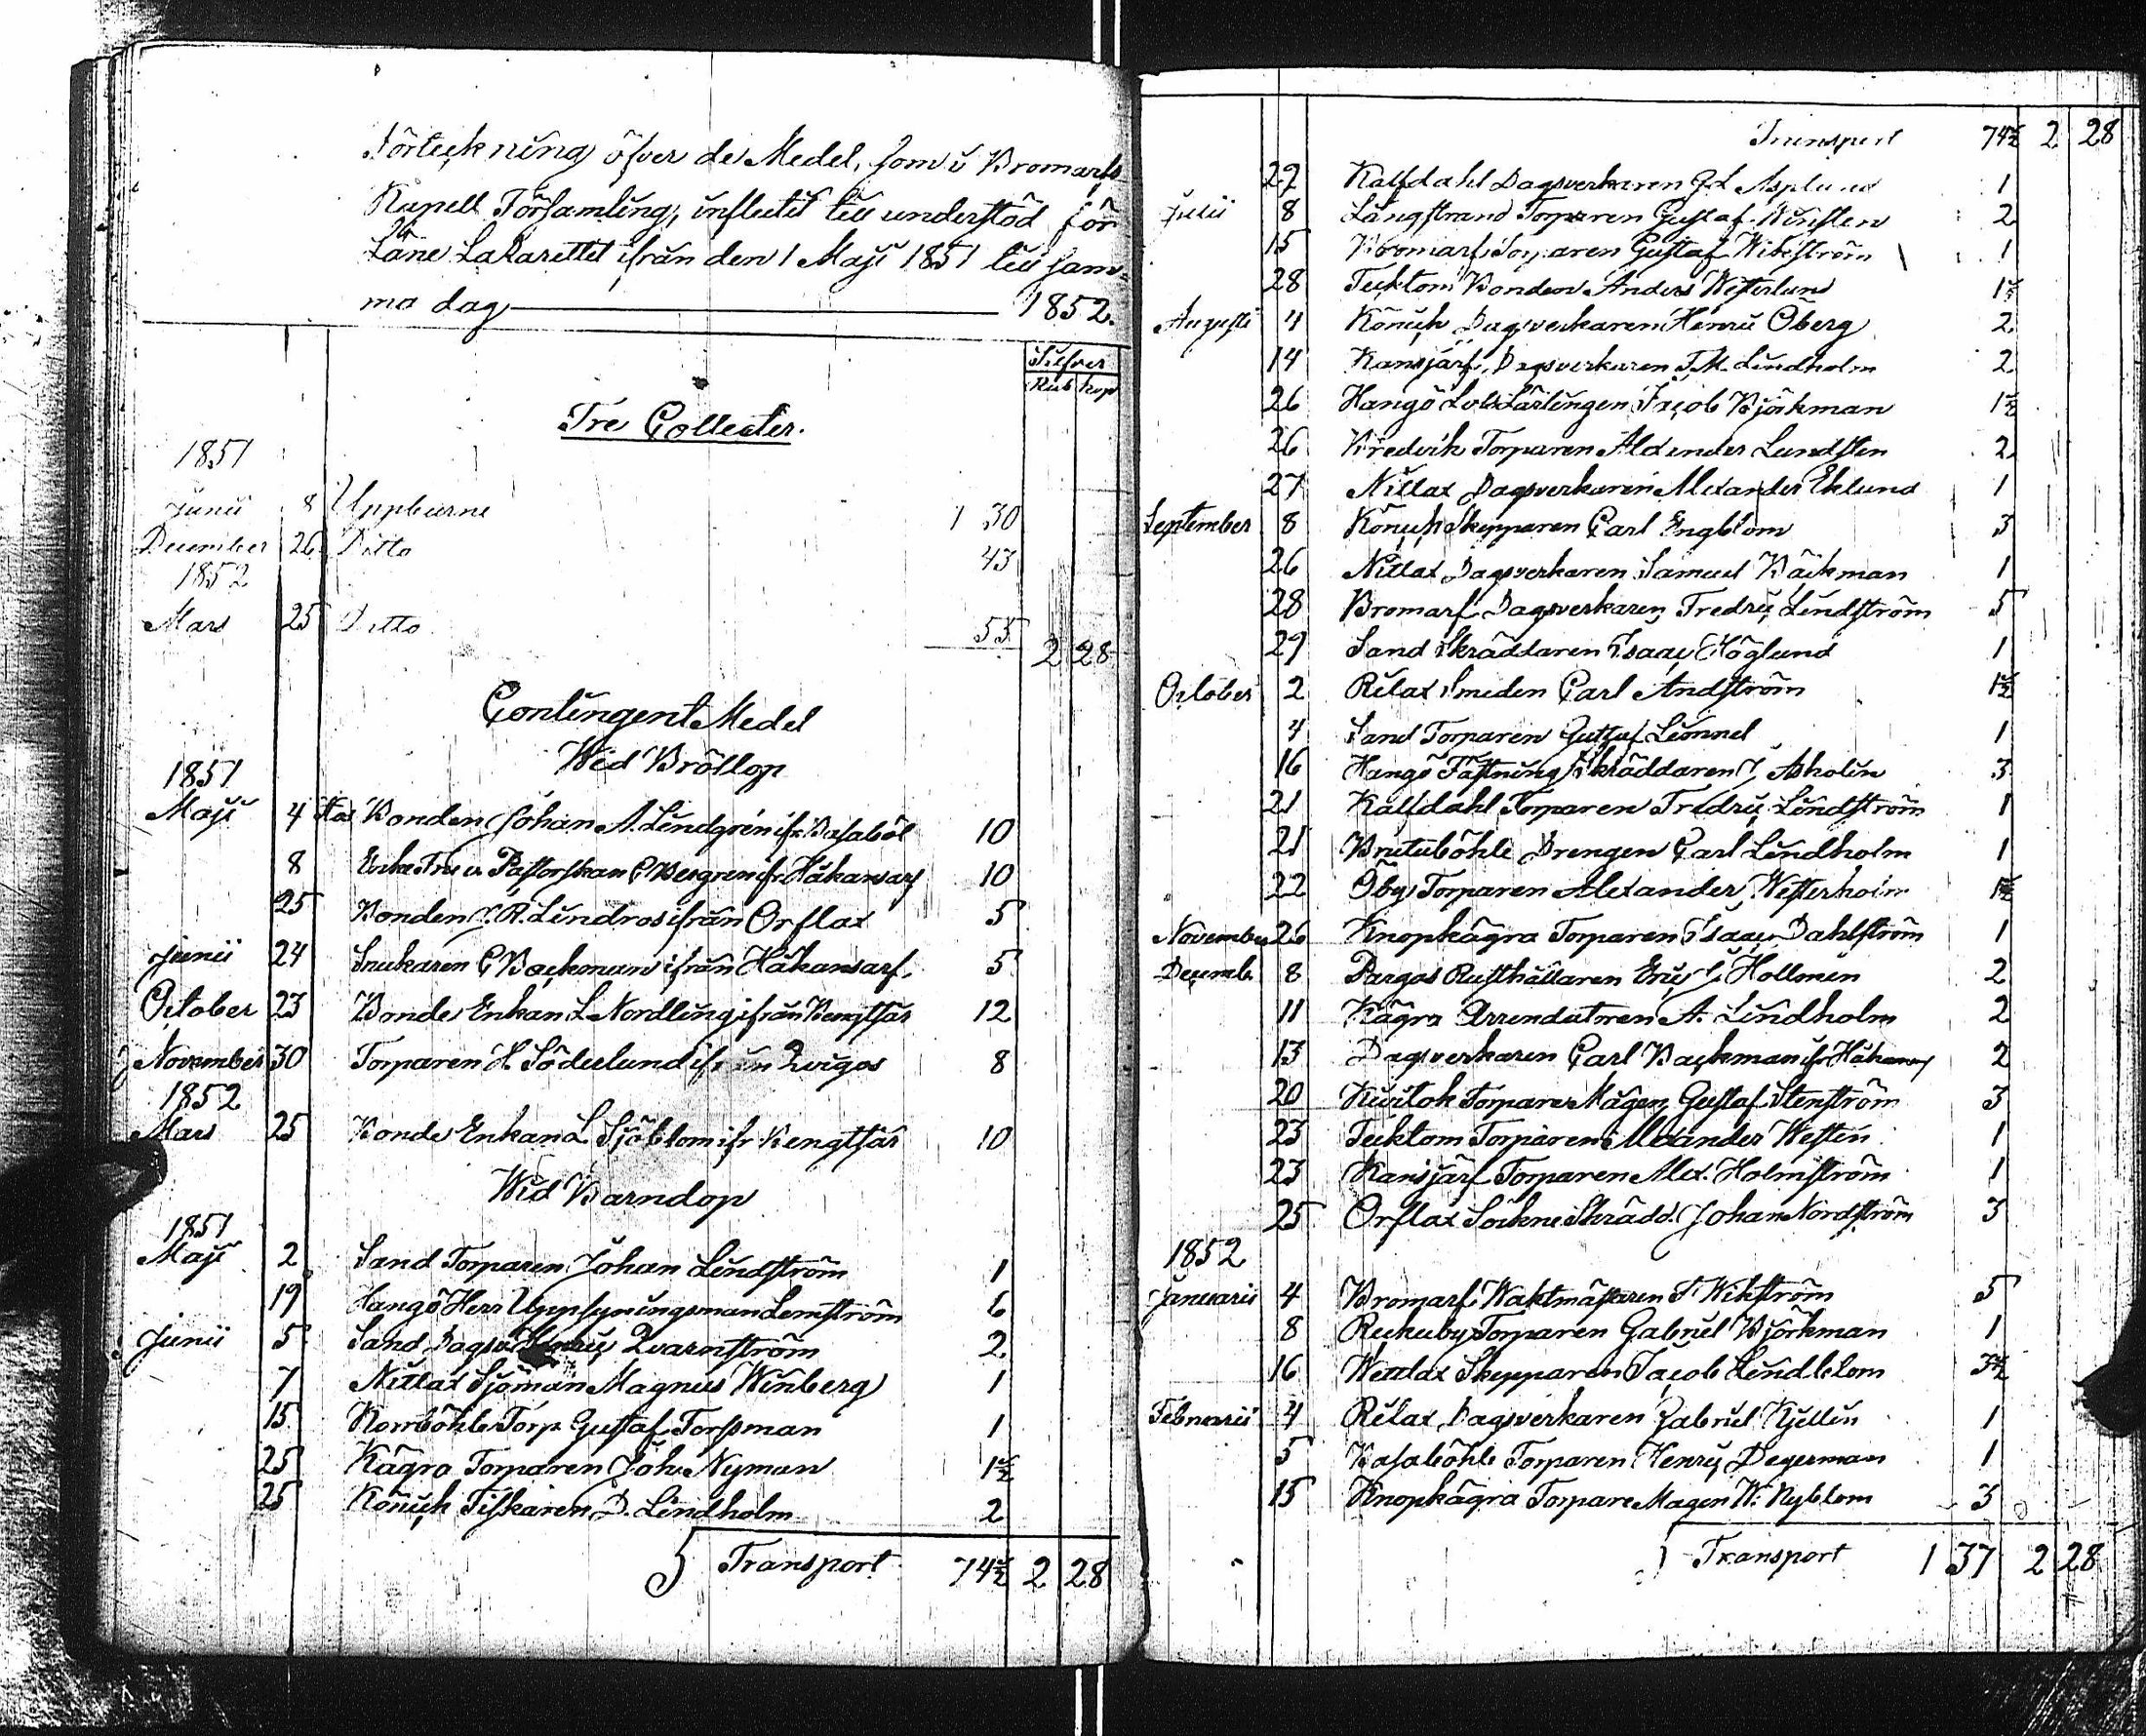 Förteckning öfver de Medel, som i Bromarfs
Kapell Församling, influtit till understöd för
Läne Lazarettet ifrån den 1 Maji 1851 till sam-
ma dag 1852.
Silfver
Rub kop
Tre Collecter.
1851
Junii 8 Uppburne 1 30
December 26 Ditto 43
1852
Mars 25 Ditto 55
2 28
Contingent Medel
Wid Bröllop
1851
Maji 4 Hos Bonden Johan A. Lindgren ifr. Basaböl 10
8 Enke Fru Pastorskan C Bergren ifr. Håkansarf 10
25 Bonden J. R. Lindros ifrån Orslax 5
Junii 24 Snickaren C Backman ifrån Håkansarf 5
October 23 Bonde Enkan L Nordling ifrån Bengtsår 12
November 30 Torparen H. Söderlund ifrån Qvigos 8
1852
Mars 25 Bonde Enkan L Sjöblom ifr Bengtsår 10
Wid Barndop
1851
Maji 2 Sand Torparen Johan Lindström 1
19 Hangö Herr Uppsyningsman Lemström 6
Junii 5 Sand Dagsv Henric Qvarnström 2
7 Nitlax Sjöman Magnus Winberg 1
15 Norrböhle Torp. Gustaf Forsman 1
25 Kågra Torparen Joh. Nyman 1½
25 Könick Fiskaren D. Lindholm 2
Transport 74½ 2 28
Transport 74½ 2 28
22 Kalfdahl Dagsverkaren G. L Asplund 1
Julii 8 Långstrand Torparen Gustaf 2
15 Bromarf Torparen Gustaf Wikström 1
28 Tecktom Bonden Anders Westerlund 1½
Augusti 4 Könick Dagsverkaren Henric Öberg 2
14 Kansjärf Dagsverkaren F. M. Lindholm 2
26 Hangö Lots Lärlingen Jacob Björkman 1½
26 Bredvik Torparen Alexander Lundsten 2
27 Nitlax Dagsverkaren Alexander Eklund 1
September 8 Könick Skepparen Carl Engblom 3
26 Nitlax Dagsverkaren Samuel Bäckman 1
28 Bromarf Dagsverkaren Fredric Lindström 5
29 Sand Skräddaren Isaac Höglund 1
October 2 Rilax Smeden Carl Andström 1½
4 Sand Torparen Gustaf Lionnel 1
16 Hangö Fästning Skräddaren J. Asholin 3
21 Kalfdahl Torparen Fredric Lindström 1
21 Brutuböhle Drengen Carl Lindholm 1
22 Öby Torparen Alexander Westerholm 1½
November 26 Knopkägra Torparen Isaac Dahlström 1
Decemb. 8 Pargas Rusthållaren Eric J. Hollmén 2
11 Kågra Arrendatoren A. Lindholm 2
13 Dagsverkaren Carl Backman ifr Håkansarf 2
20 Kivitok Torpare Mågen Gustaf Stenström 3
23 Tecktom Torparen Alexander Westén 1
23 Kansjärf Torparen Alex. Holmström 1
25 Orslax Sockne Skrädd. Johan Nordström 3
1852
Januarii 4 Bromarf Waktmästaren F Wikström 5
8 Rickuby Torparen Gabriel Björkman 1
16 Wettlax Skepparen Jacob Lindblom 3½
Februarii 4 Rilax Dagsverkaren Gabriel Kjellin 1
5 Basaböhle Torparen Henric Degerman 1
15 Knopkägra Torpare Magen W. Nyblom 3
Transport 1 37 2 28